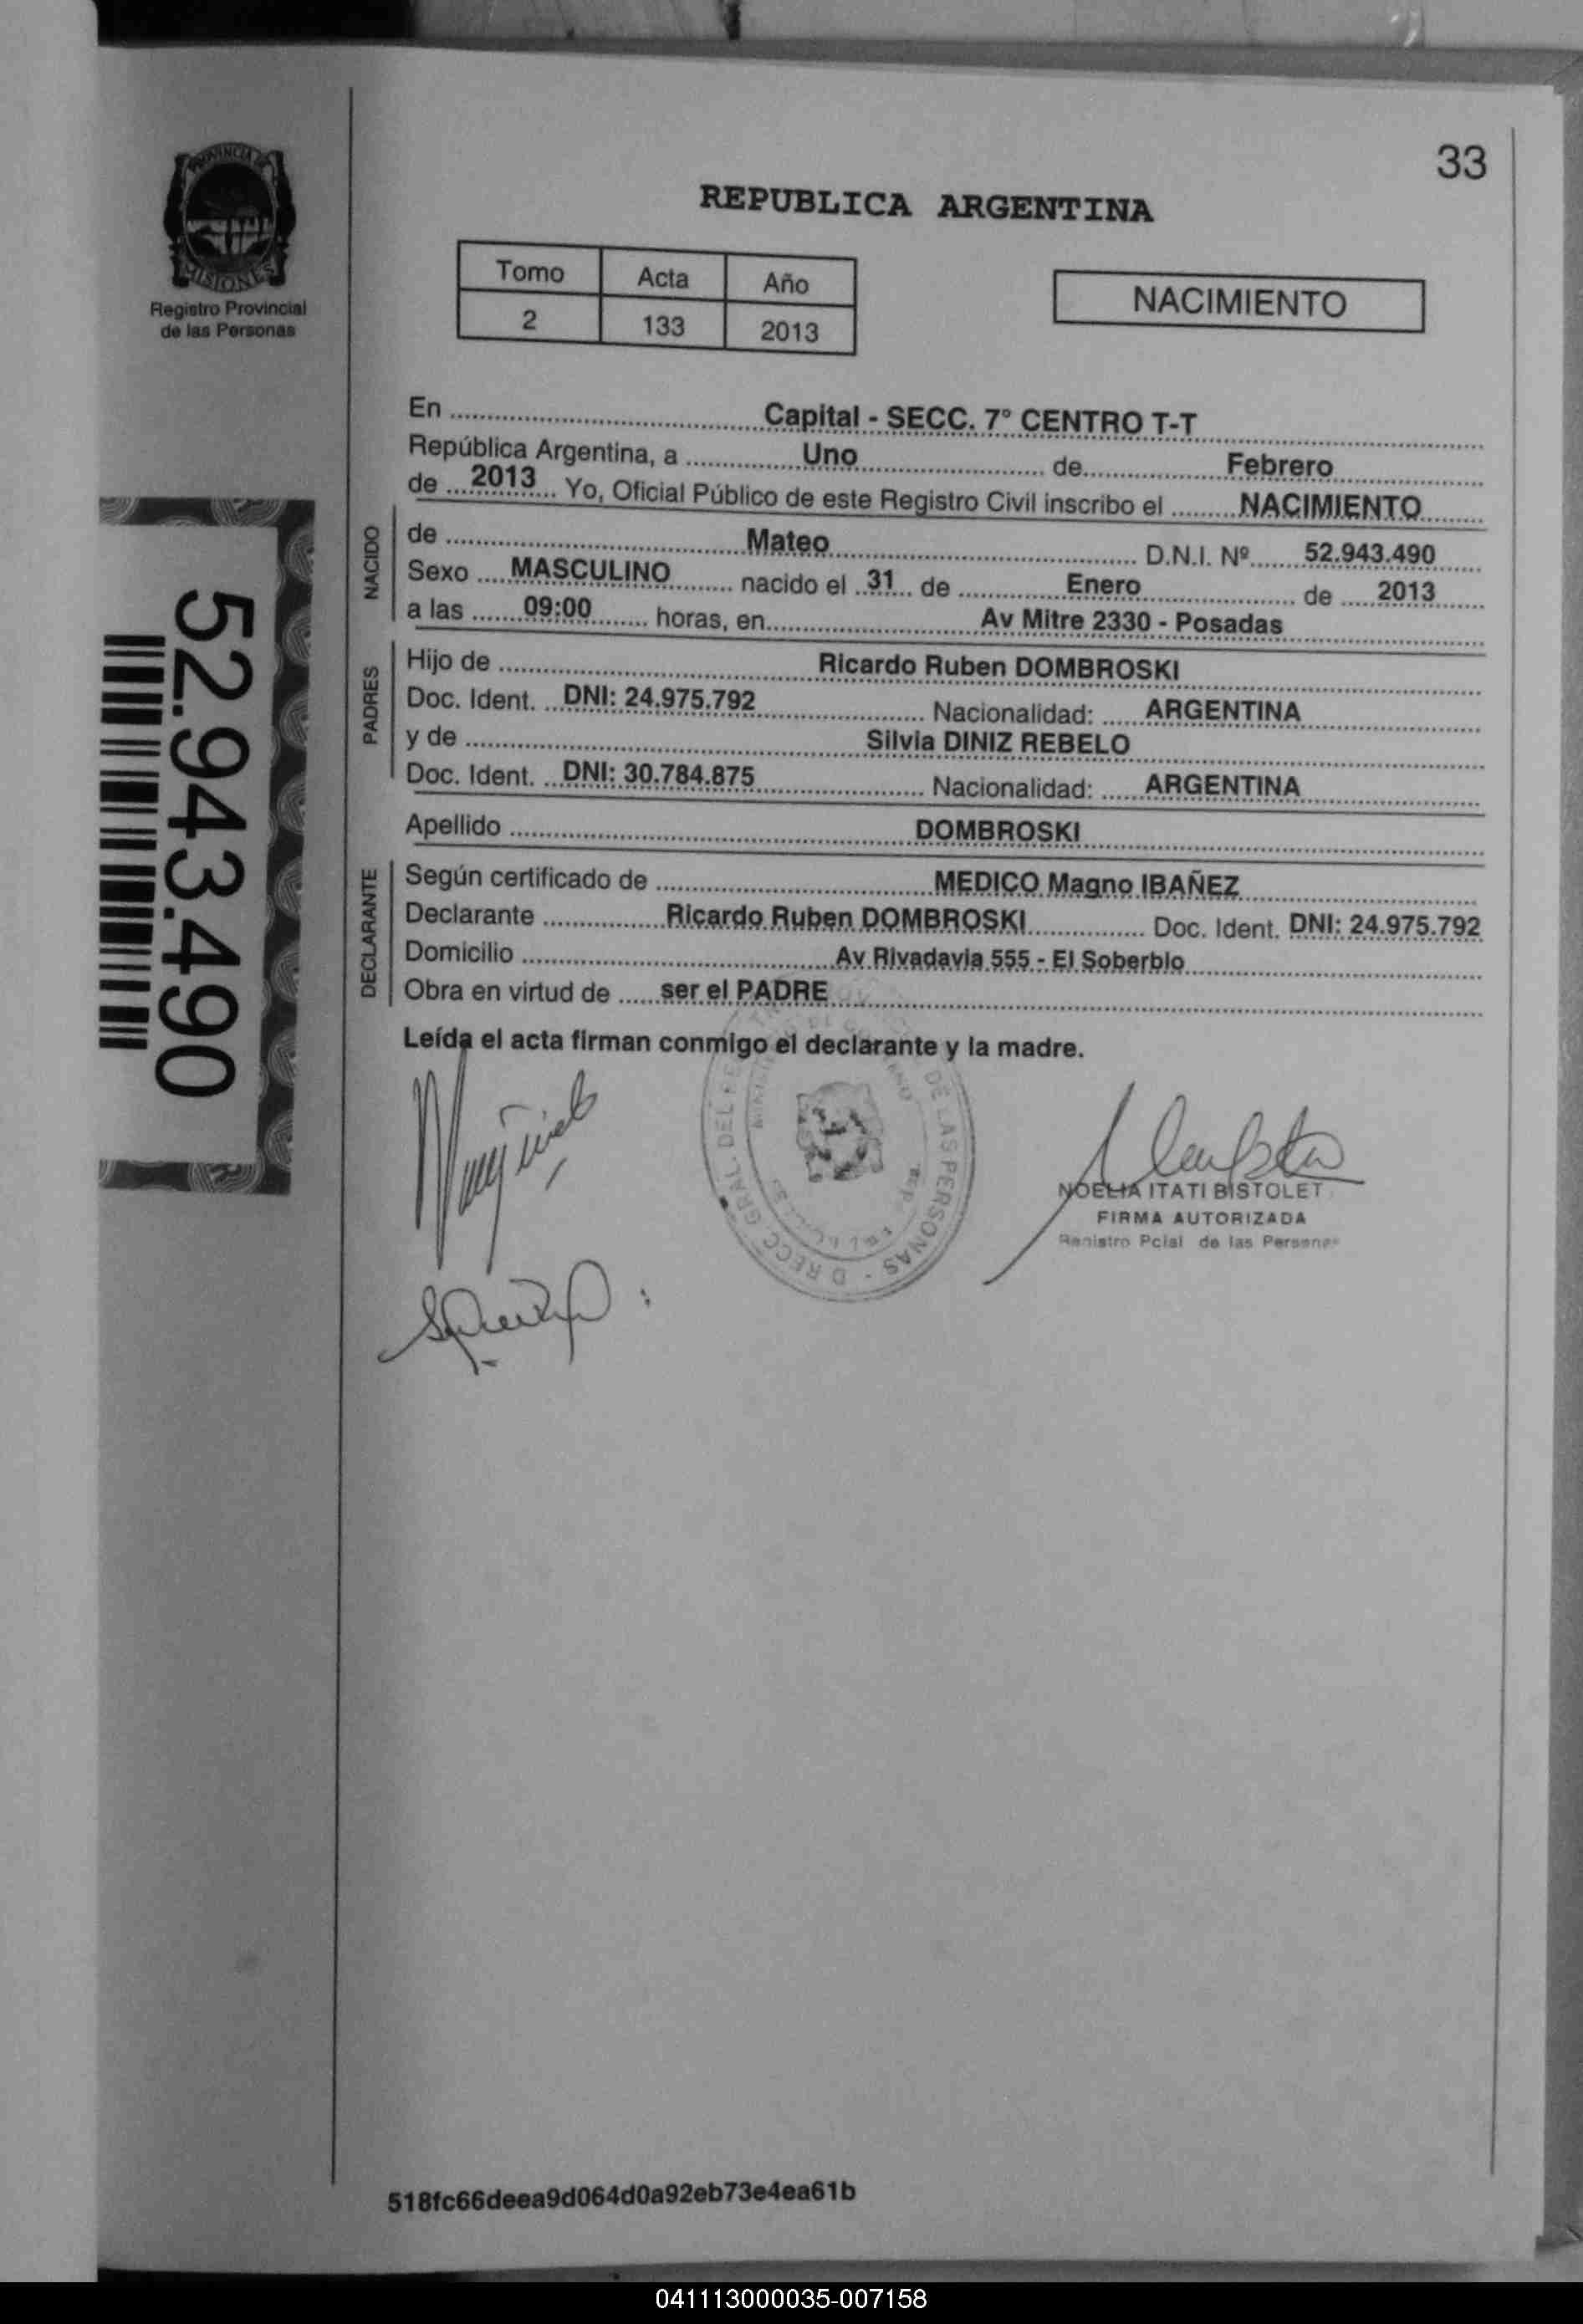 33
PROVINCIA DE
MISIONES
Registro Provincial
de las Personas
REPUBLICA ARGENTINA
Tomo Acta Año
2 133 2013
NACIMIENTO
En Capital - SECC. 7° CENTRO T-T
República Argentina, a Uno de Febrero
de 2013 Yo, Oficial Público de este Registro Civil inscribo el NACIMIENTO
NACIDO
de Mateo D.N.I. Nº 52.943.490
Sexo MASCULINO nacido el 31 de Enero de 2013
a las 09:00 horas, en Av Mitre 2330 - Posadas
PADRES
Hijo de Ricardo Ruben DOMBROSKI
Doc. Ident. DNI: 24.975.792 Nacionalidad: ARGENTINA
y de Silvia DINIZ REBELO
Doc. Ident. DNI: 30.784.875 Nacionalidad: ARGENTINA
Apellido DOMBROSKI
DECLARANTE
Según certificado de MEDICO Magno IBAÑEZ
Declarante Ricardo Ruben DOMBROSKI Doc. Ident. DNI: 24.975.792
Domicilio Av Rivadavia 555 - El Soberbio
Obra en virtud de ser el PADRE
Leída el acta firman conmigo el declarante y la madre.
52.943.490
DE LAS PERSONAS - D RECC. GRAL. DEL
NOELIA ITATI BISTOLET
FIRMA AUTORIZADA
Registro Pcial de las Personas
518fc66deea9d064d0a92eb73e4ea61b
041113000035-007158